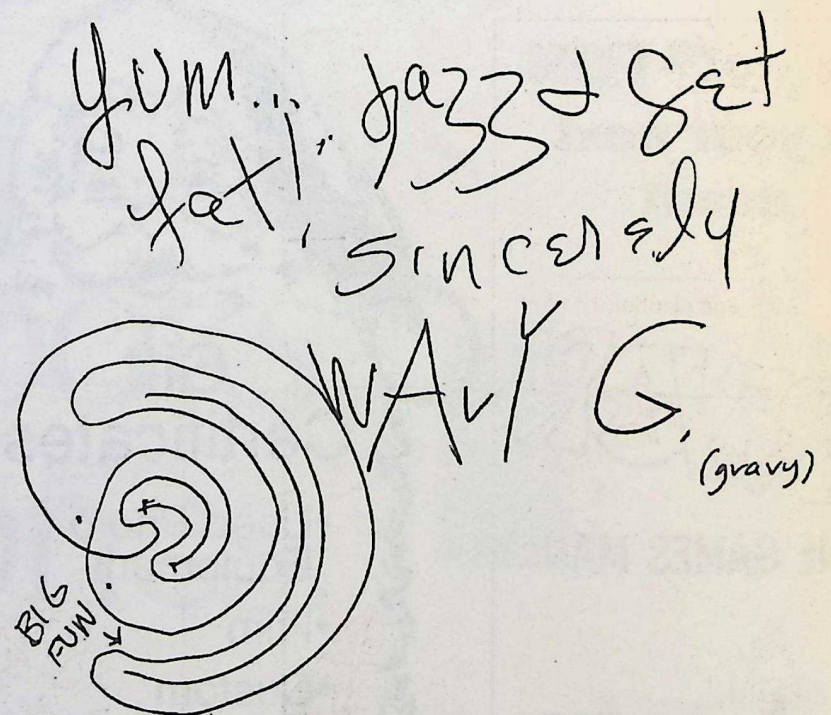 Yum... jazz & get
fat!
sincerely
WAVY G.
(gravy)
BIG
FUN